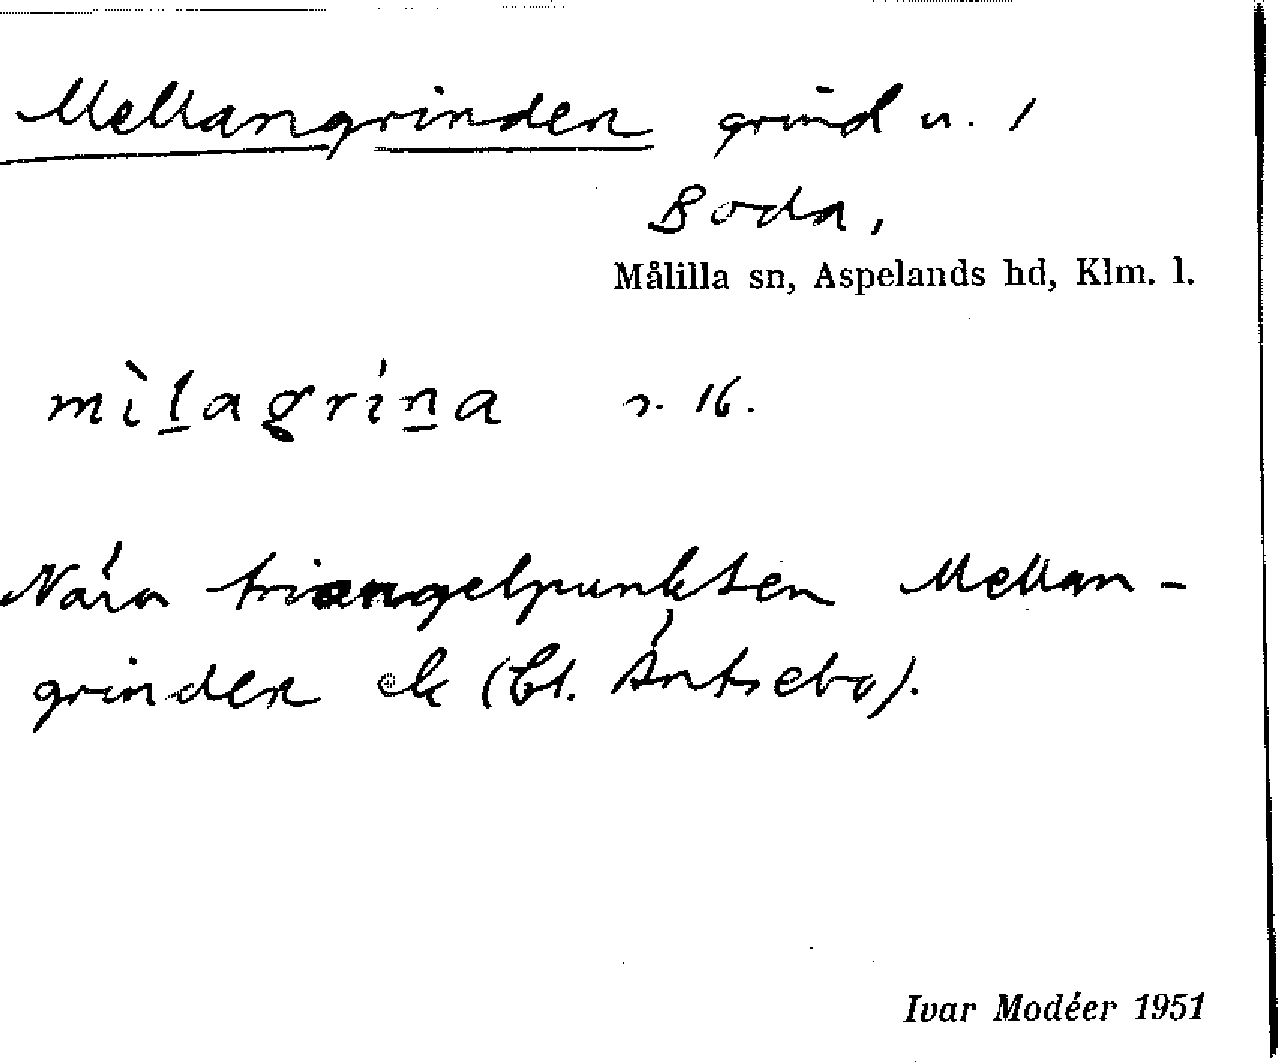 Mellangrinden grind n. 1
Boda,
Målilla sn, Aspelands hd, Klm. l.
mìlagrina s. 16.
Nära triangelpunkten Mellan-
grinden ek (bl. Äntsebo).
Ivar Modéer 1951